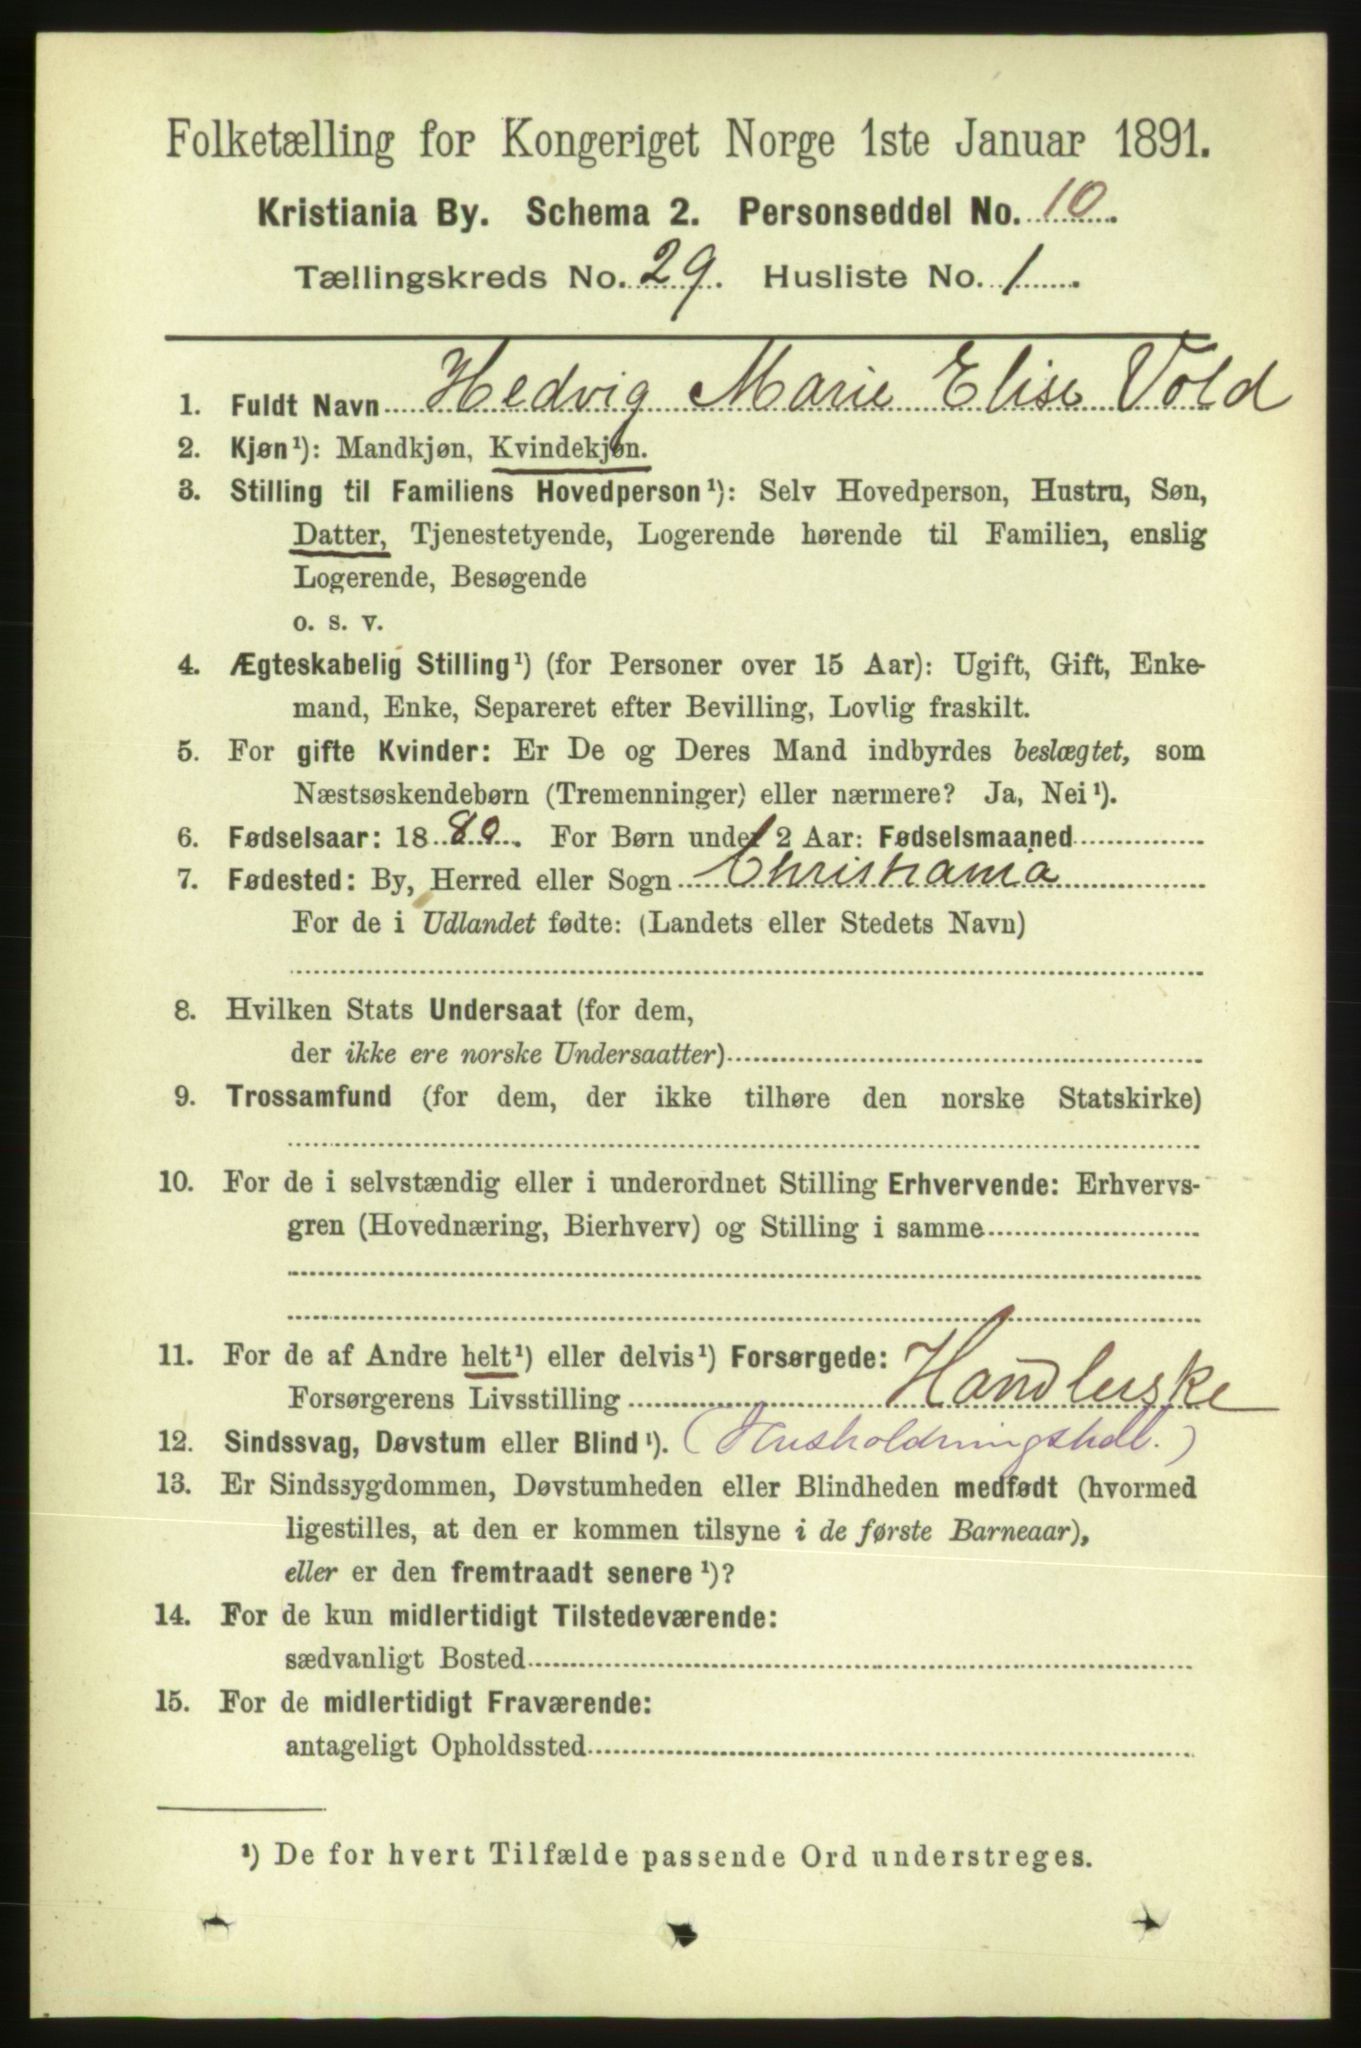 Folketælling for Kongeriget Norge 1ste Januar 1891.
Kristiania By. Schema 2. Personseddel No. 10.
Tællingskreds No. 29. Husliste No. 1.
1. Fuldt Navn Hedvig Marie Elise Vold
2. Kjøn¹): Mandkjøn, Kvindekjøn.
3. Stilling til Familiens Hovedperson¹): Selv Hovedperson, Hustru, Søn,
Datter, Tjenestetyende, Logerende hørende til Familien, enslig
Logerende, Besøgende
o. s. v.
4. Ægteskabelig Stilling¹) (for Personer over 15 Aar): Ugift, Gift, Enke-
mand, Enke, Separeret efter Bevilling, Lovlig fraskilt.
5. For gifte Kvinder: Er De og Deres Mand indbyrdes beslægtet, som
Næstsøskendebørn (Tremenninger) eller nærmere? Ja, Nei¹).
6. Fødselsaar: 1880. For Børn under 2 Aar: Fødselsmaaned
7. Fødested: By, Herred eller Sogn Christiania
For de i Udlandet fødte: (Landets eller Stedets Navn)
8. Hvilken Stats Undersaat (for dem,
der ikke ere norske Undersaatter)
9. Trossamfund (for dem, der ikke tilhøre den norske Statskirke)
10. For de i selvstændig eller i underordnet Stilling Erhvervende: Erhvervs-
gren (Hovednæring, Bierhverv) og Stilling i samme
11. For de af Andre helt¹) eller delvis¹) Forsørgede:
Forsørgerens Livsstilling Handlerske
12. Sindssvag, Døvstum eller Blind¹). (Husholdningshdl.)
13. Er Sindssygdommen, Døvstumheden eller Blindheden medfødt (hvormed
ligestilles, at den er kommen tilsyne i de første Barneaar),
eller er den fremtraadt senere¹)?
14. For de kun midlertidigt Tilstedeværende:
sædvanligt Bosted
15. For de midlertidigt Fraværende:
antageligt Opholdssted
¹) De for hvert Tilfælde passende Ord understreges.